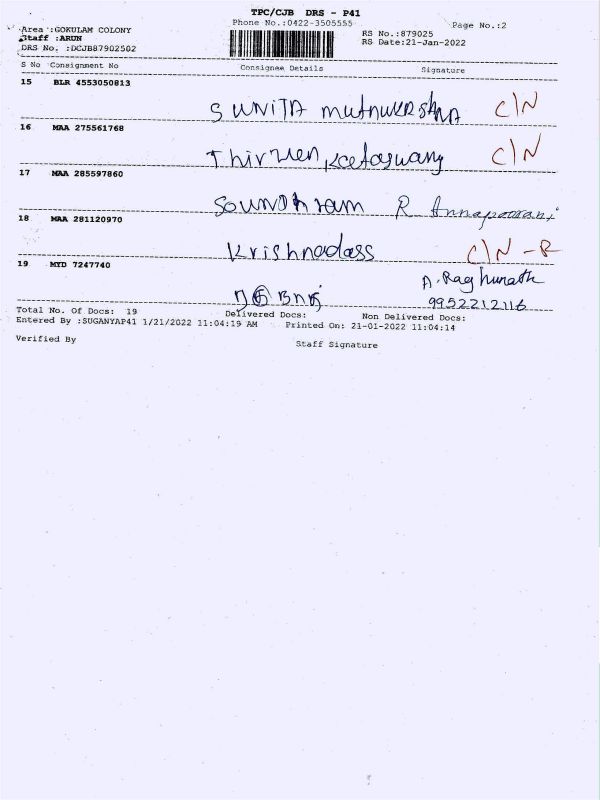 TPC/CJB DRS - P41
Phone No.:0422-3505555 Page No.:2
Area :GOKULAM COLONY
Staff :ARUN
DRS No. :DCJB87902502
RS No.:879025
RS Date:21-Jan-2022
S No Consignment No Consignee Details Signature
15 BLR 4553050813
SUNITA C/N
16 MAA 275561768
C/N
17 MAA 285597860
Soundhram R Annapoorani
18 MAA 281120970
Krishnadass C/N - R
19 MYD 7247740
A. Raghunath
9952212116
Total No. Of Docs: 19 Delivered Docs: Non Delivered Docs:
Entered By :SUGANYAP41 1/21/2022 11:04:19 AM Printed On: 21-01-2022 11:04:14
Verified By Staff Signature